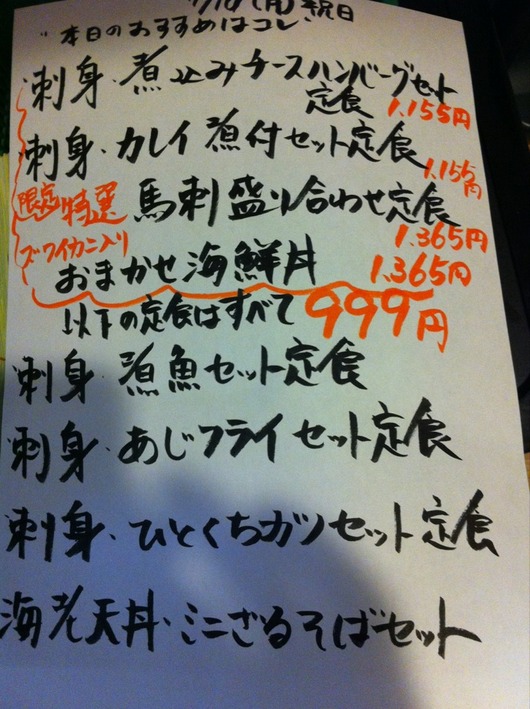 (月)祝日
"本日のおすすめはコレ
刺身・煮込みチーズハンバーグセット
定食 1.155円
刺身・カレイ煮付セット定食
1.155円
限定特選 馬刺盛り合わせ定食
1.365円
ズワイカニ入り
おまかせ海鮮丼 1.365円
以下の定食はすべて 999円
刺身・煮魚セット定食
刺身・あじフライセット定食
刺身・ひとくちカツセット定食
海老天丼・ミニざるそばセット